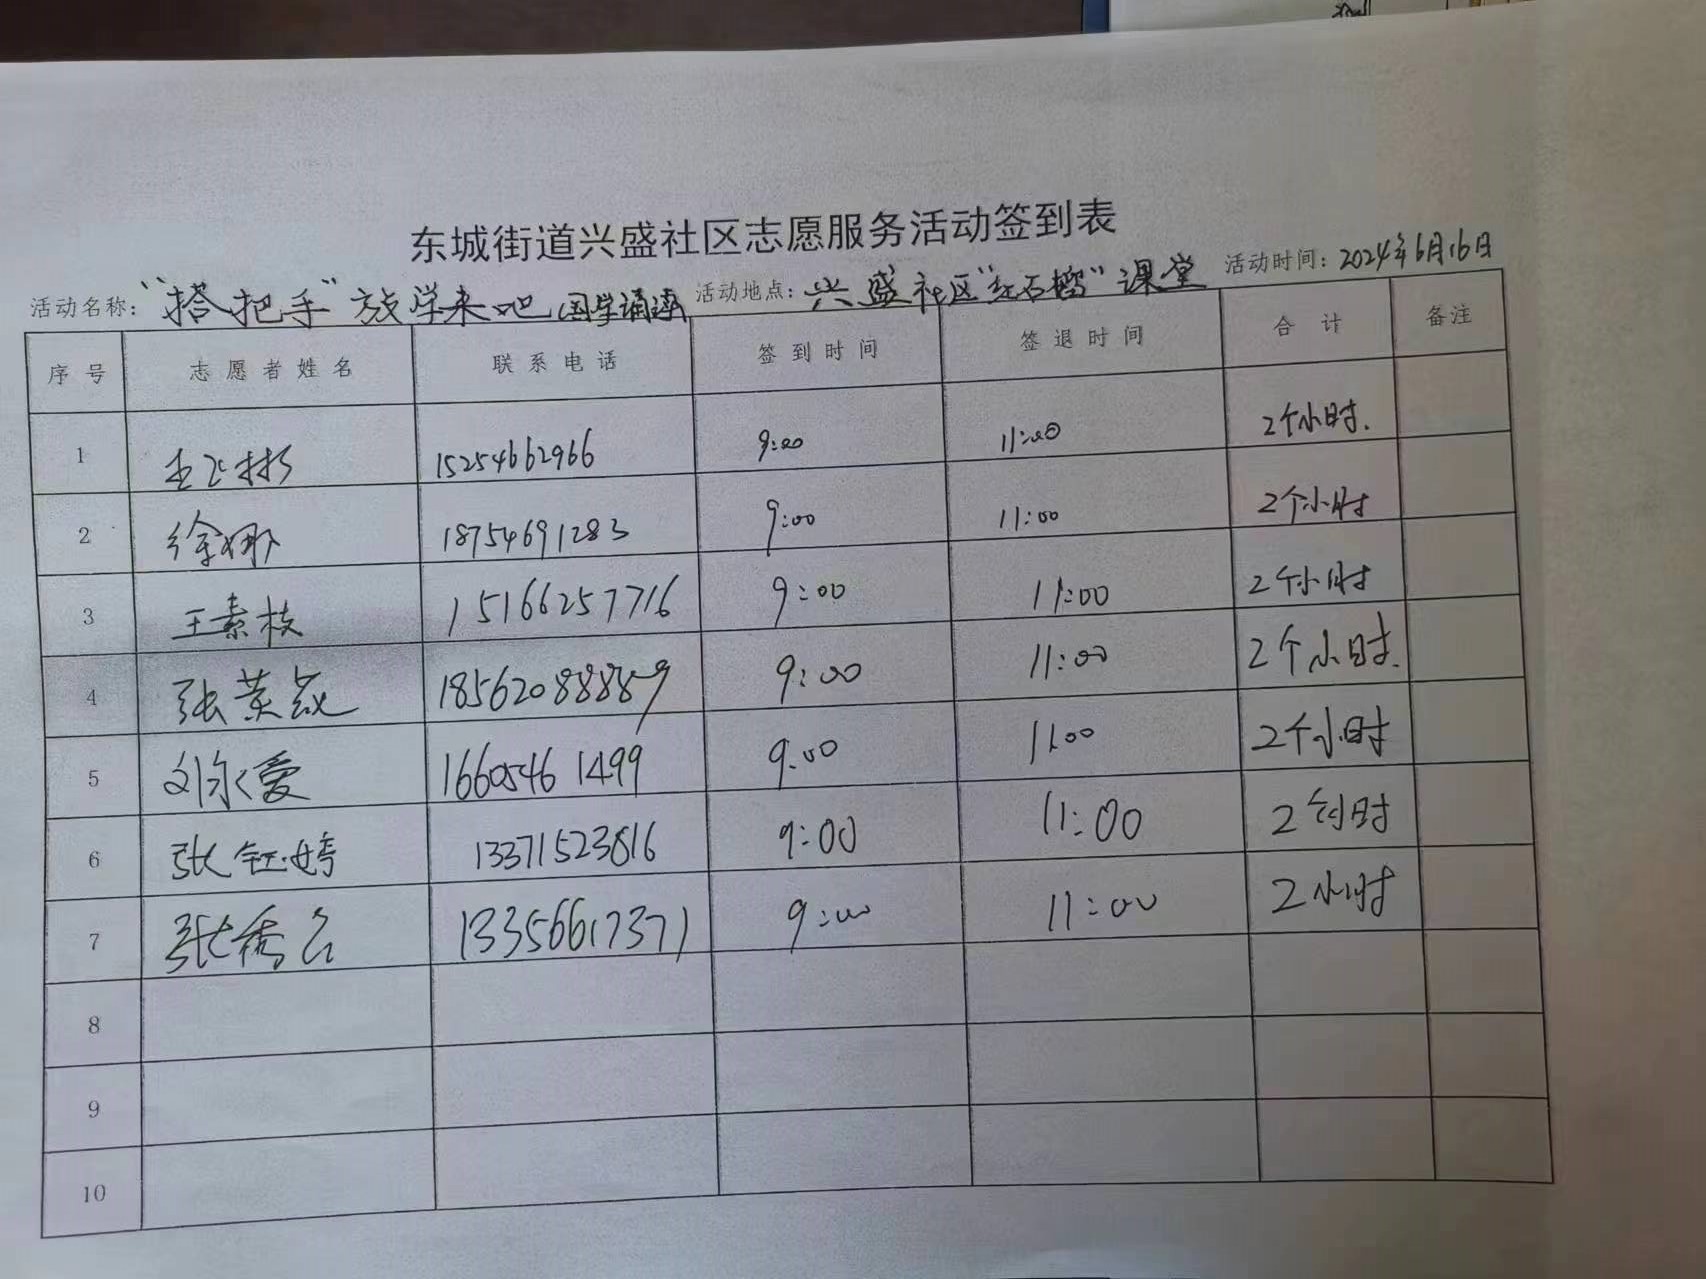 东城街道兴盛社区志愿服务活动签到表
活动名称：“搭把手”放学来吧 国学诵读 活动地点：兴盛社区“红石榴”课堂 活动时间：2024年6月16日
序号 志愿者姓名 联系电话 签到时间 签退时间 合计 备注
1 15254662966 9:00 11:00 2个小时.
2 徐娜 18754691283 9:00 11:00 2个小时
3 王素枝 15166257716 9:00 11:00 2个小时
4 张 18562088889 9:00 11:00 2个小时.
5 刘永爱 16605461499 9:00 11:00 2个小时
6 张钰婷 13371523816 9:00 11:00 2个小时
7 张秀 13356617371 9:00 11:00 2小时
8
9
10